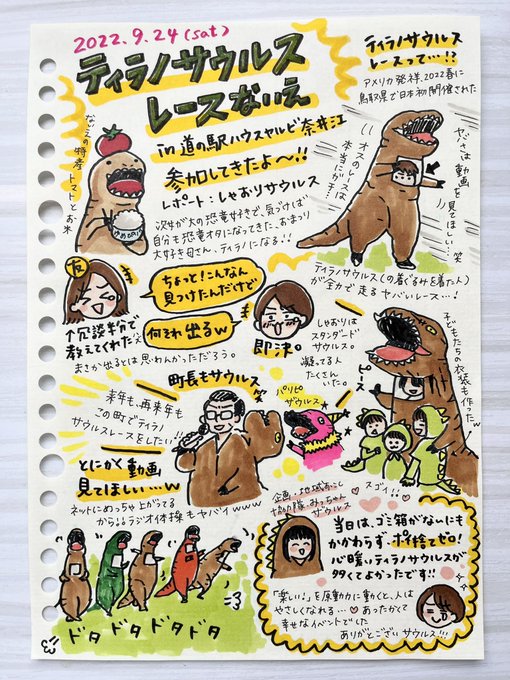 2022.9.24(sat)
ティラノサウルス
レースないえ
in 道の駅ハウスヤルビ奈井江
参加してきたよ〜!!
レポート：しゃおりサウルス
次女が大の恐竜好きで、気づけば
自分も恐竜オタになってきた、おまつり
大好き母さん、ティラノになる!!
ないえの特産
トマトとお米
ティラノサウルス
レースって…!?
アメリカ発祥、2022春に
鳥取県で日本初開催された
オスのレースは
本当にガチ…
ヤバさは動画を
見てほしい…笑
ティラノサウルス(の着ぐるみを着た人)
が全力で走るヤバいレース…!
友
ちょっと!こんなん
見つけたんだけど
何それ出るw
↑冗談半分で
教えてくれた
まさか出るとは思わんかっただろう。
即決。
しゃおりは
スタンダード
サウルス。
凝ってる人
たくさん
いた。
子どもたちの衣装も作ったw
ピース
町長もサウルス
笑
来年も、再来年も
この町でティラノ
サウルスレースをしたい!!
パリピ
サウルス
とにかく動画
見てほしい…w
ネットにめっちゃ上がってる
から!!ラジオ体操もヤバイwww
スゴイ!!
企画・地域おこし
協力隊 みっちゃん
サウルス
当日は、ゴミ箱がないにも
かかわらず、ポイ捨てゼロ!
心暖いティラノサウルスが
多くてよかったです!!
「楽しい!」を原動力に動くと、人は
やさしくなれる…♡あったかくて
幸せなイベントでした
ありがとございサウルス!!!
ドタドタドタドタ